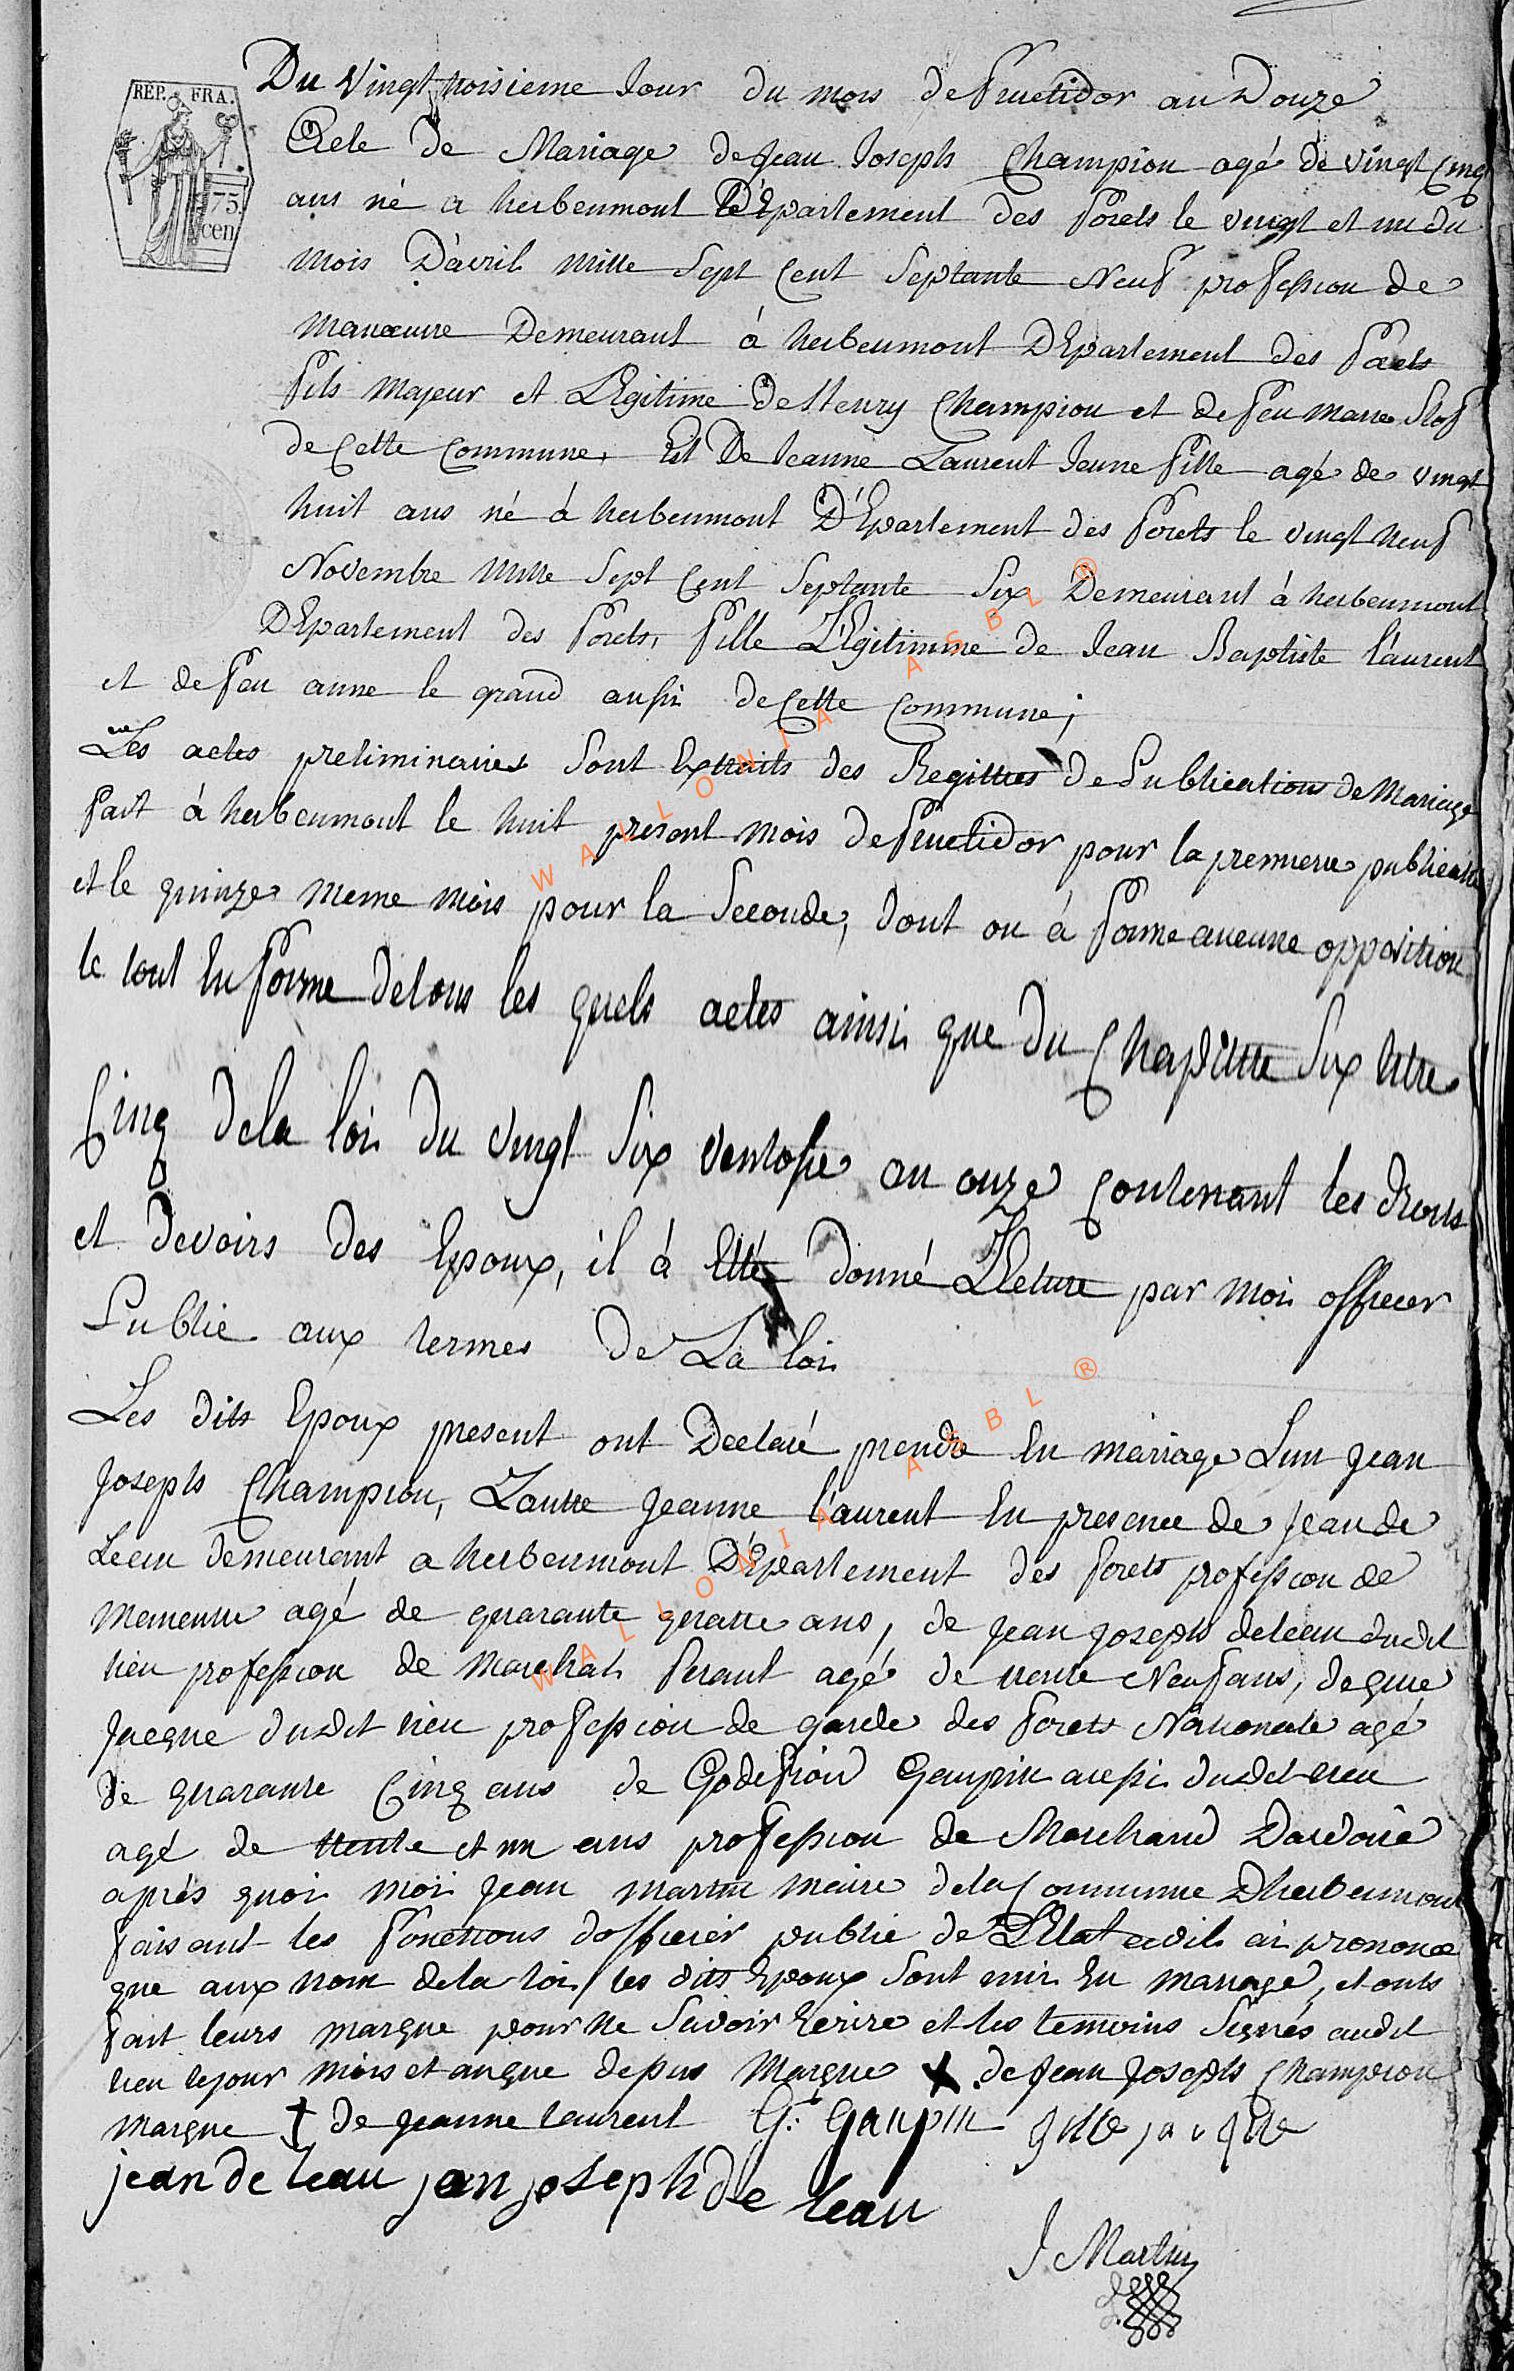 REP. FRA.
75
cen
Du Vingt troisieme Jour du mois de fructidor an Douze
Acte de Mariage de Jean Joseph Champion agé de vingt Cinq
ans né a herbeumont Département des forets le vingt et un du
mois D'avril mille Sept Cent Septante Neuf profession de
manœuvre Demeurant à herbeumont DEpartement des forets
fils majeur et LEgitime de Henry Champion et de feu marie
de Cette Commune, Et De Jeanne Laurent Jeune fille agé de vingt
huit ans né à herbeumont D'Epartement des forets le vingt neuf
Novembre mille Sept Cent Septante Six Demeurant à herbeumont
DEpartement des forets, fille LEgitimme de Jean Baptiste Laurent
et de feu anne le grand aussi de Cette Commune;
Les actes preliminaires Sont Extraits des Regittres de Publications de Mariage
fait à herbeumont le huit present mois de fructidor pour la premiere publication
et le quinze meme mois pour la Seconde, dont on à forme aucune opposition
le tout En forme de tous les quels actes ainsi que du Chapittre Six titre
Cinq de la loi du vingt Six ventose an onze Contenant les droits
et devoirs des Epoux, il à Etté donné LEcture par moi officier
Public aux termes de La loi
Les dits Epoux present ont Declaré prendre En mariage Lun Jean
Joseph Champion, Lautre Jeanne Laurent En presence de Jean de
Leau demeurant a herbeumont D'Epartement des forets profession de
agé de quarante quattre ans, de Jean Joseph deleau dudit
lieu profession de Marchal ferant agé de trente Neuf ans, de
Jacque dudit lieu profession de garde des forets Nationale agé
de quarante Cinq ans de Godefroid Gaupin aussi dudit lieu
agé de trente et un ans profession de Marchand Dardoise
après quoi moi Jean Martin Maire de la Commune Dherbeumont
faisant les fonctions dofficier public de LEtat civil ai prononcé
que aux nom de la loi les dits Epoux Sont unir En mariage, et onts
fait leurs marque pour ne Savoir Ecrire et les temoins Signés audit
lieu le jour mois et an que depus Marque de Jean Joseph Champion
Marque de Jeanne Laurent G: Gaupin
jean de leau jean joseph de leau
J Martin
WALLONIA ASBL ®
WALLONIA ASBL ®